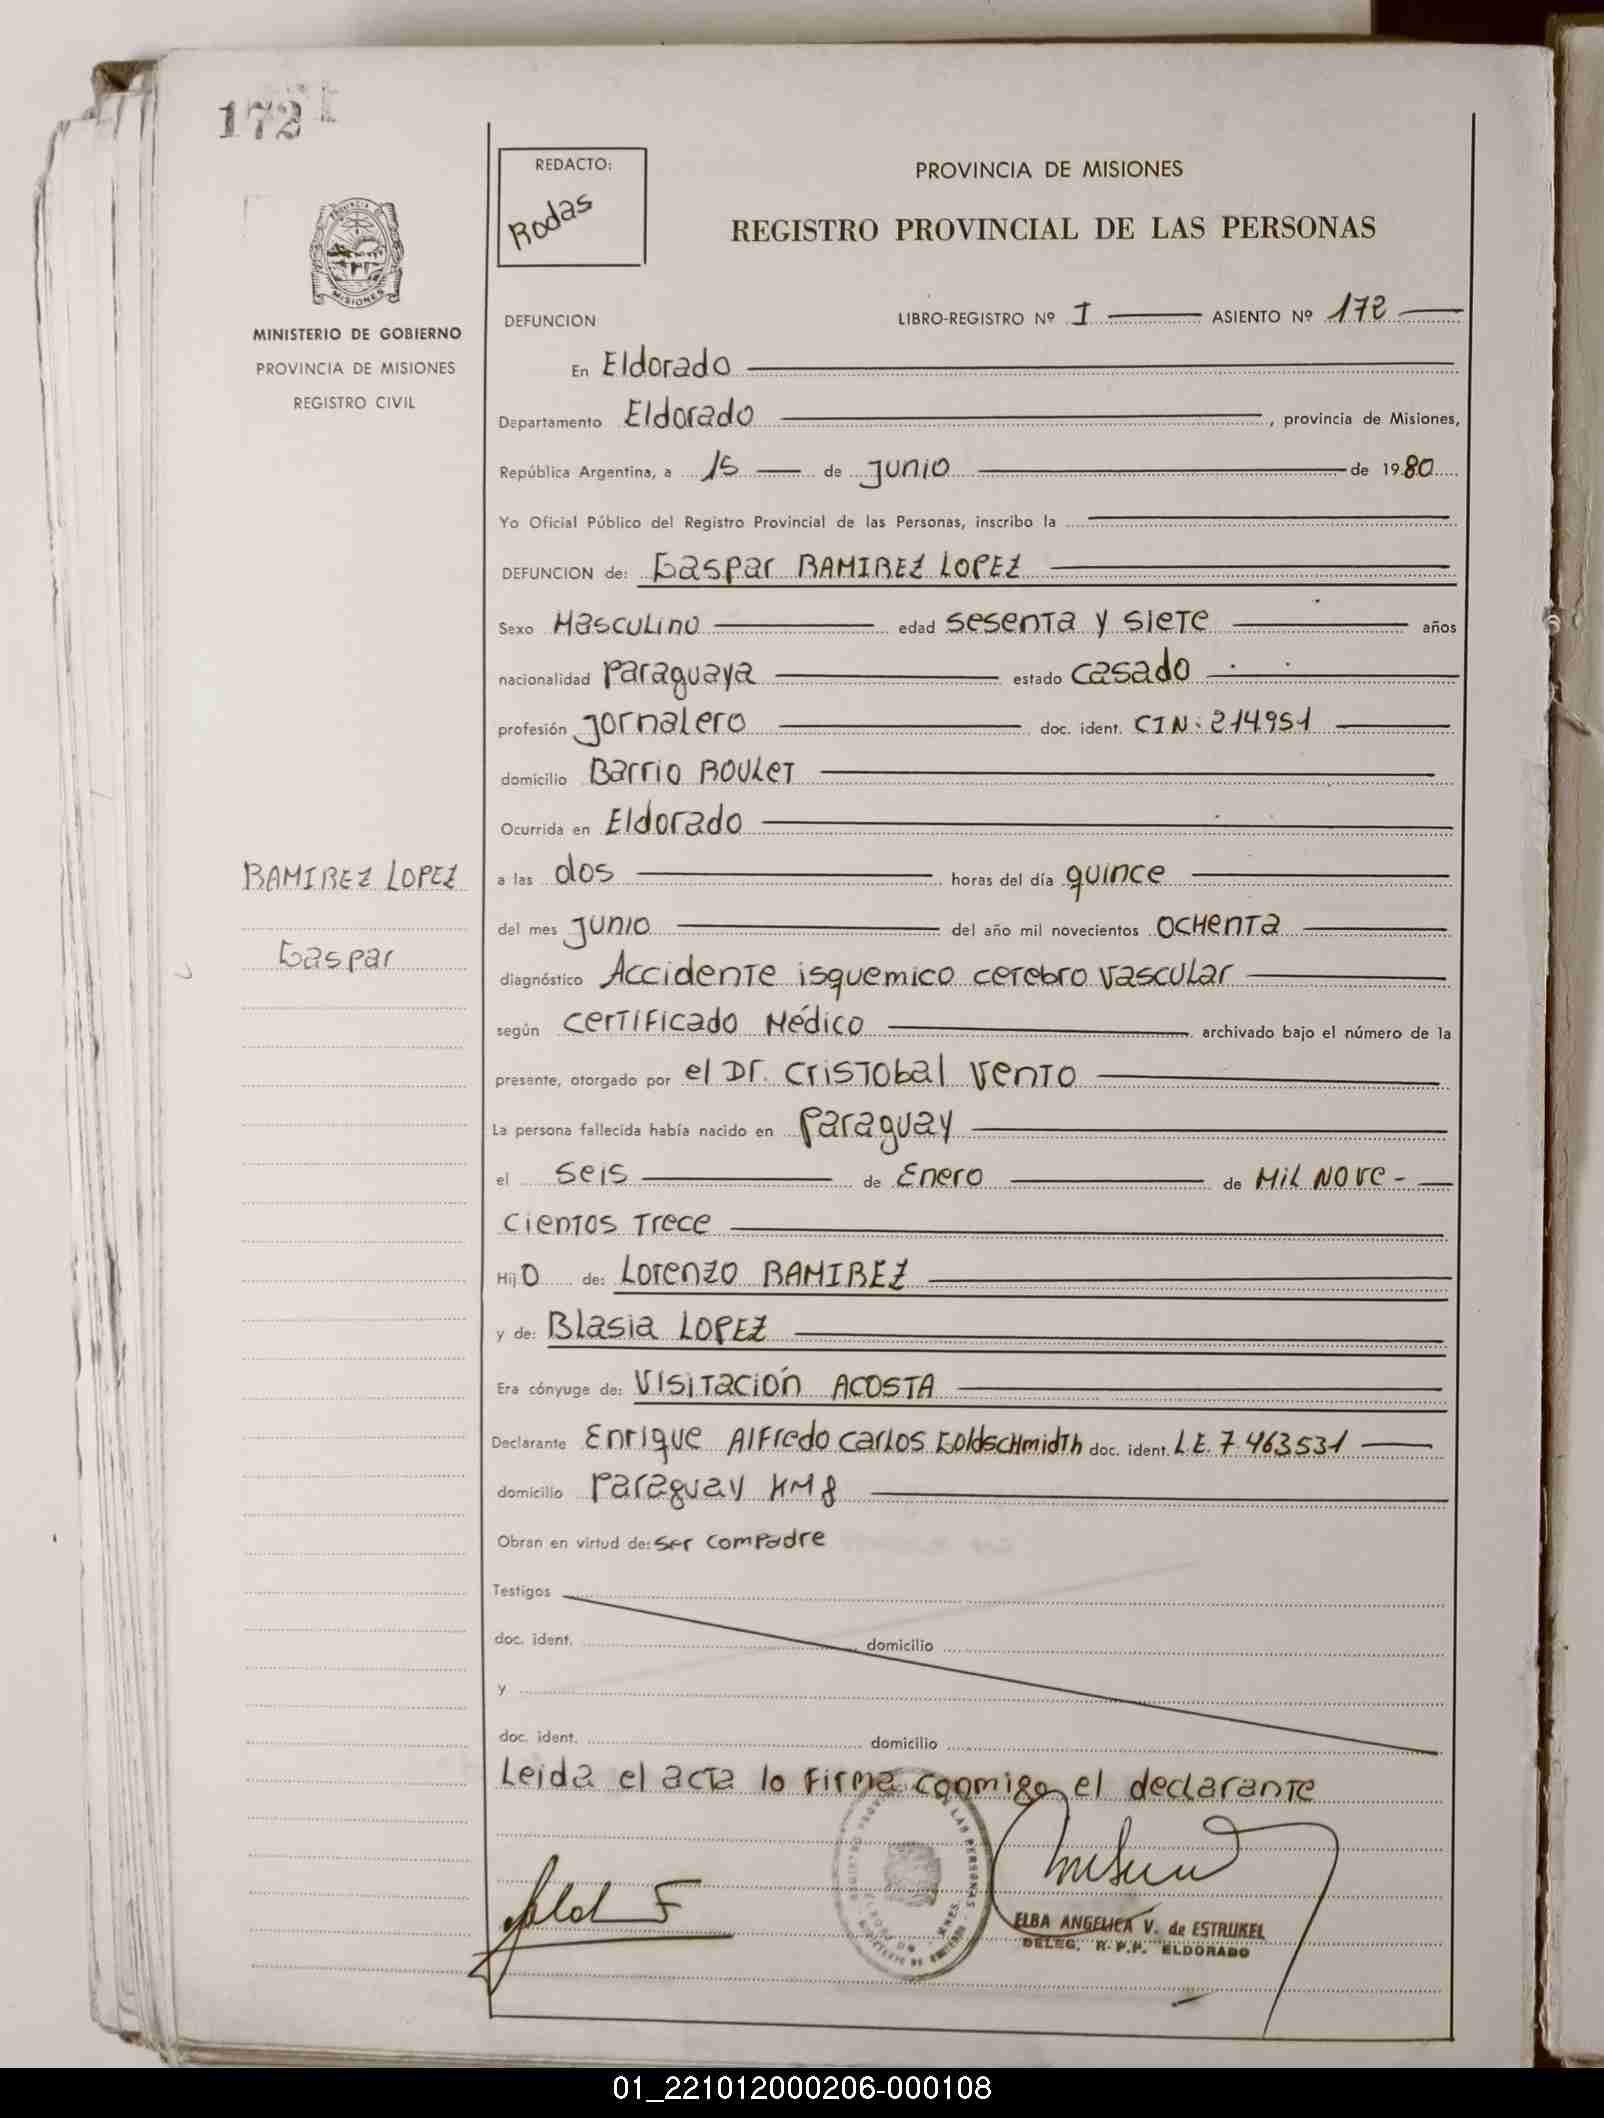 172
REDACTO:
Rodas
PROVINCIA DE MISIONES
REGISTRO PROVINCIAL DE LAS PERSONAS
PROVINCIA
MISIONES
MINISTERIO DE GOBIERNO
PROVINCIA DE MISIONES
REGISTRO CIVIL
DEFUNCION LIBRO-REGISTRO Nº I ASIENTO Nº 172
En Eldorado
Departamento Eldorado, provincia de Misiones,
República Argentina, a 15 de junio de 1980
Yo Oficial Público del Registro Provincial de las Personas, inscribo la
DEFUNCION de: Gaspar RAMIREZ LOPEZ
Sexo Masculino edad sesenta y siete años
nacionalidad paraguaya estado casado
profesión jornalero doc. ident. CIN: 214.951
domicilio Barrio ROULET
Ocurrida en Eldorado
RAMIREZ LOPEZ
Gaspar
a las dos horas del día quince
del mes junio del año mil novecientos ochenta
diagnóstico Accidente isquemico cerebro vascular
según certificado Médico archivado bajo el número de la
presente, otorgado por el Dr. Cristobal Vento
La persona fallecida había nacido en Paraguay
el seis de Enero de Mil nove-
cientos trece
Hijo de: Lorenzo RAMIREZ
y de: Blasia LOPEZ
Era cónyuge de: Visitación ACOSTA
Declarante Enrique Alfredo Carlos Goldschmidth doc. ident. L.E. 7.463531
domicilio Paraguay KM 8
Obran en virtud de: ser compadre
Testigos
doc. ident. domicilio
y
doc. ident. domicilio
Leida el acta lo firma conmigo el declarante
ELBA ANGELICA V. de ESTRUKEL
DELEG. R.P.P. ELDORADO
01_221012000206-000108